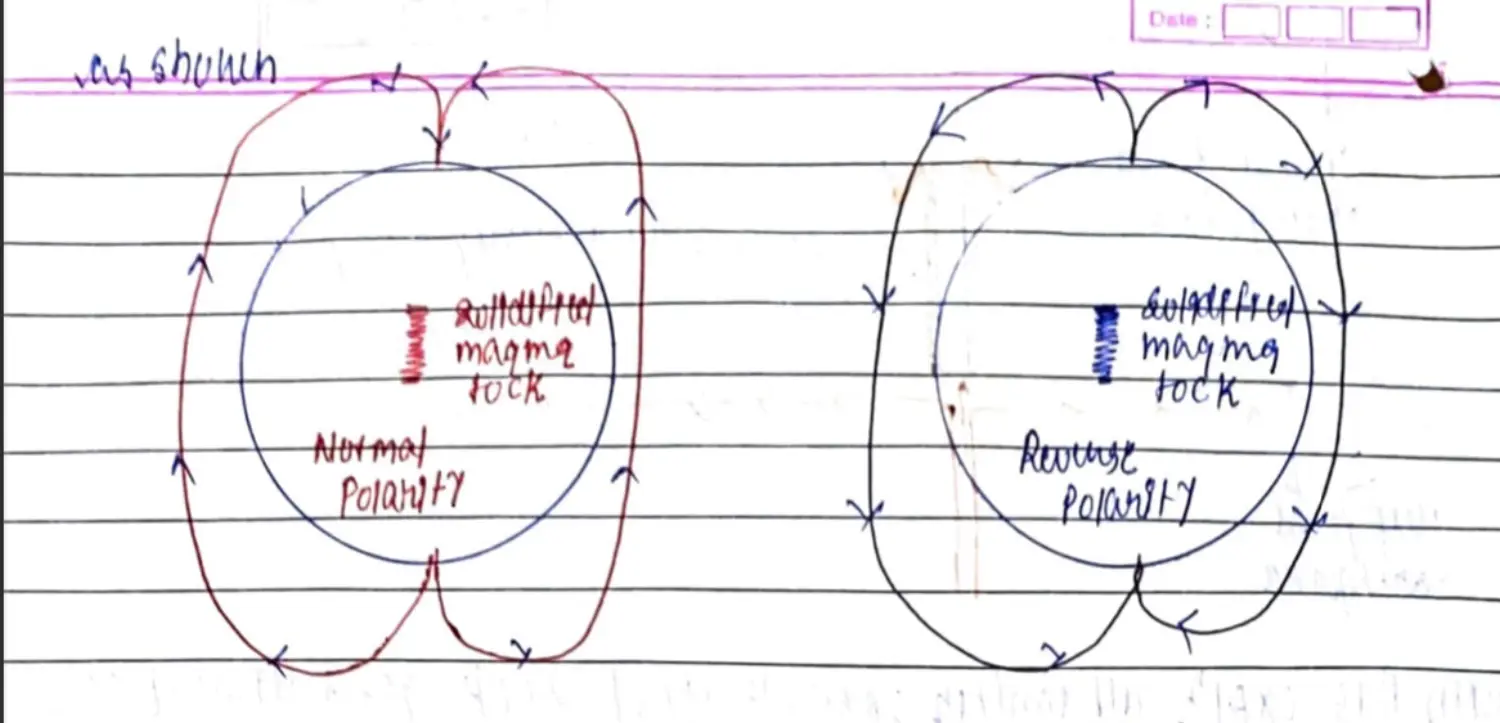 Date :
as shown
solidified
magma
rock
Normal
Polarity
solidified
magma
rock
Reverse
Polarity